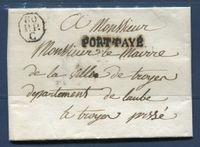 60
P.P.
C
A Monsieur
PORT PAYÉ
Monsieur le Maire
de la Ville de troyes
departement de laube
a troyes pressé